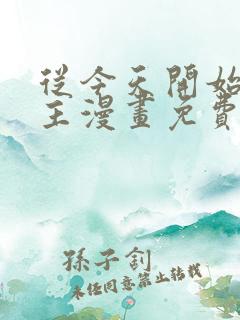 從今天開始
王漫畫免費
孫子釗
未任同意禁止转载